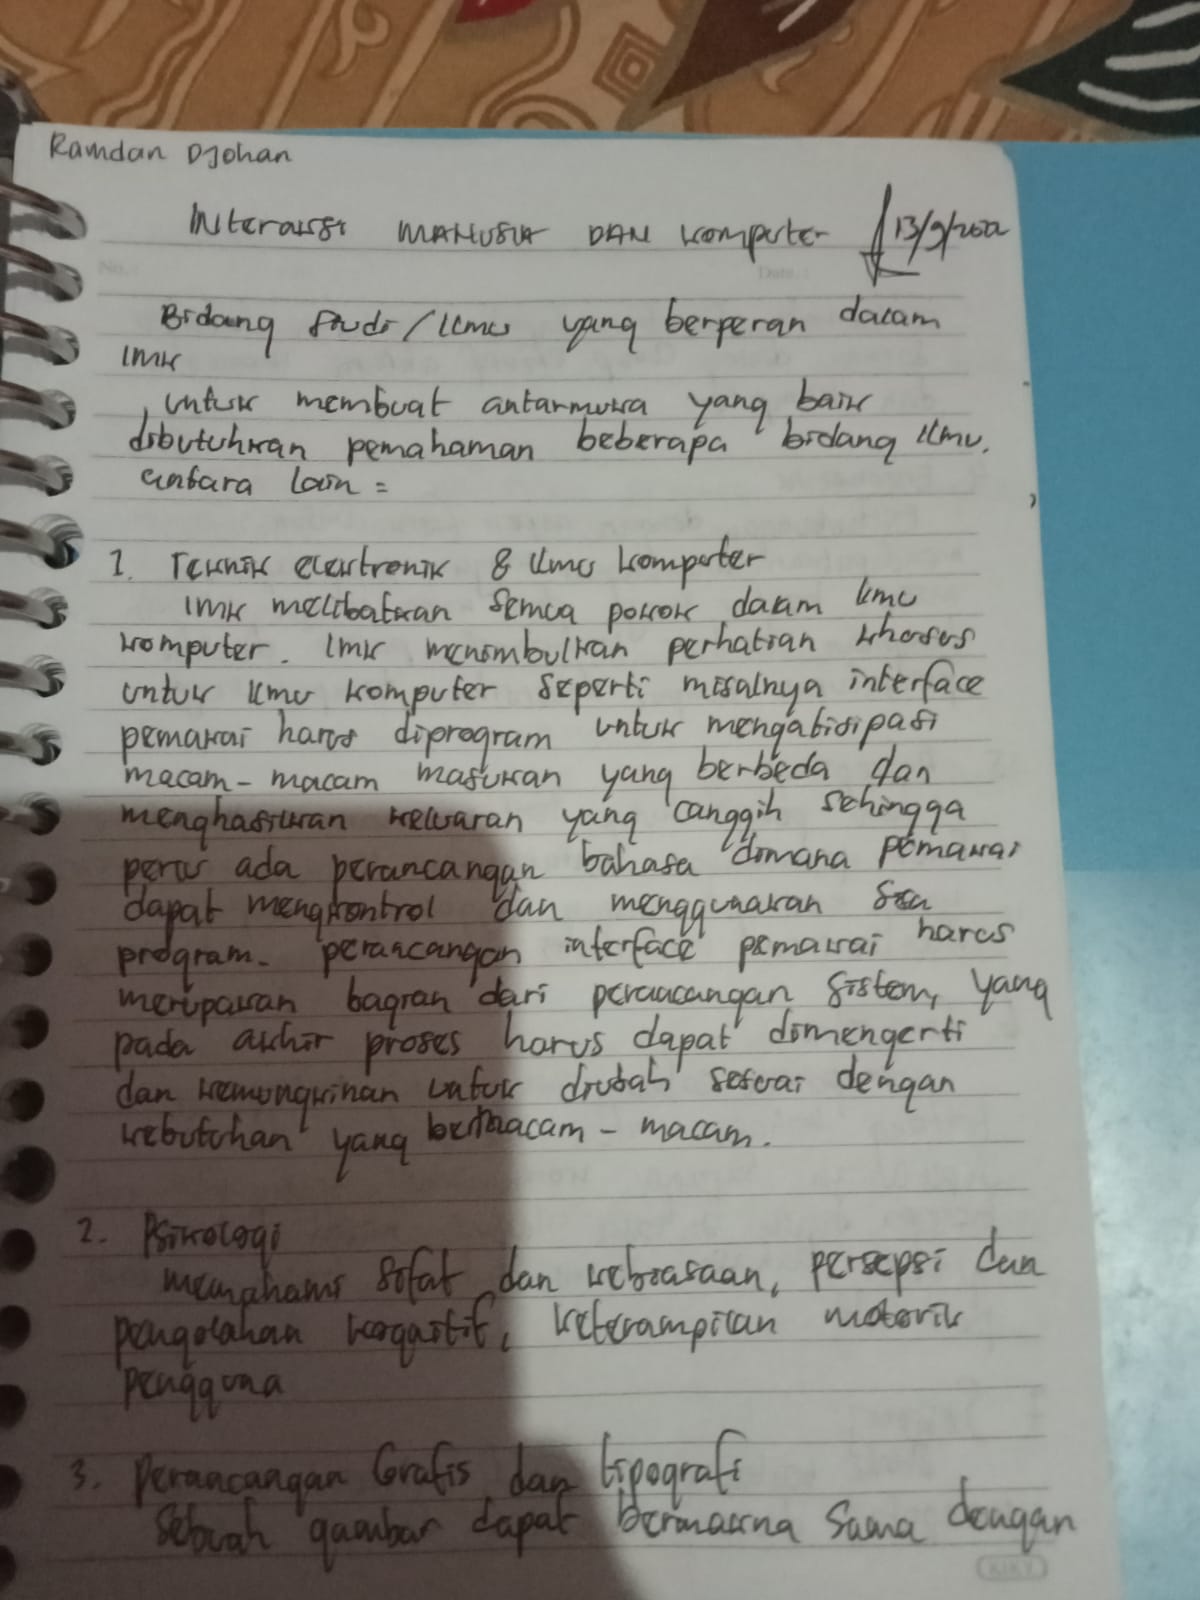 Ramdan Djohan
Interaksi MANUSIA DAN Komputer 13/9/2022
No.:
Date.:
Bidang Studi/Ilmu yang berperan dalam
IMK
untuk membuat antarmuka yang baik
dibutuhkan pemahaman beberapa bidang ilmu.
antara lain =
1. Teknik elektronik & Ilmu komputer
IMK melibatkan semua pokok dalam ilmu
komputer. IMK menimbulkan perhatian khusus
untuk ilmu komputer seperti misalnya interface
pemakai harus diprogram untuk mengatisipasi
macam-macam masukan yang berbeda dan
menghasilkan keluaran yang canggih sehingga
perlu ada perancangan bahasa dimana pemakai
dapat mengkontrol dan menggunakan
program. perancangan interface pemakai harus
merupakan bagian dari perancangan sistem, yang
pada akhir proses harus dapat dimengerti
dan kemungkinan untuk diubah sesuai dengan
kebutuhan yang bermacam-macam.
2. Psikologi
memahami sifat dan kebiasaan, persepsi dan
pengolahan kognitif, keterampilan motorik
pengguna
3. Perancangan Grafis dan tipografi
Sebuah gambar dapat bermakna sama dengan
KIKY